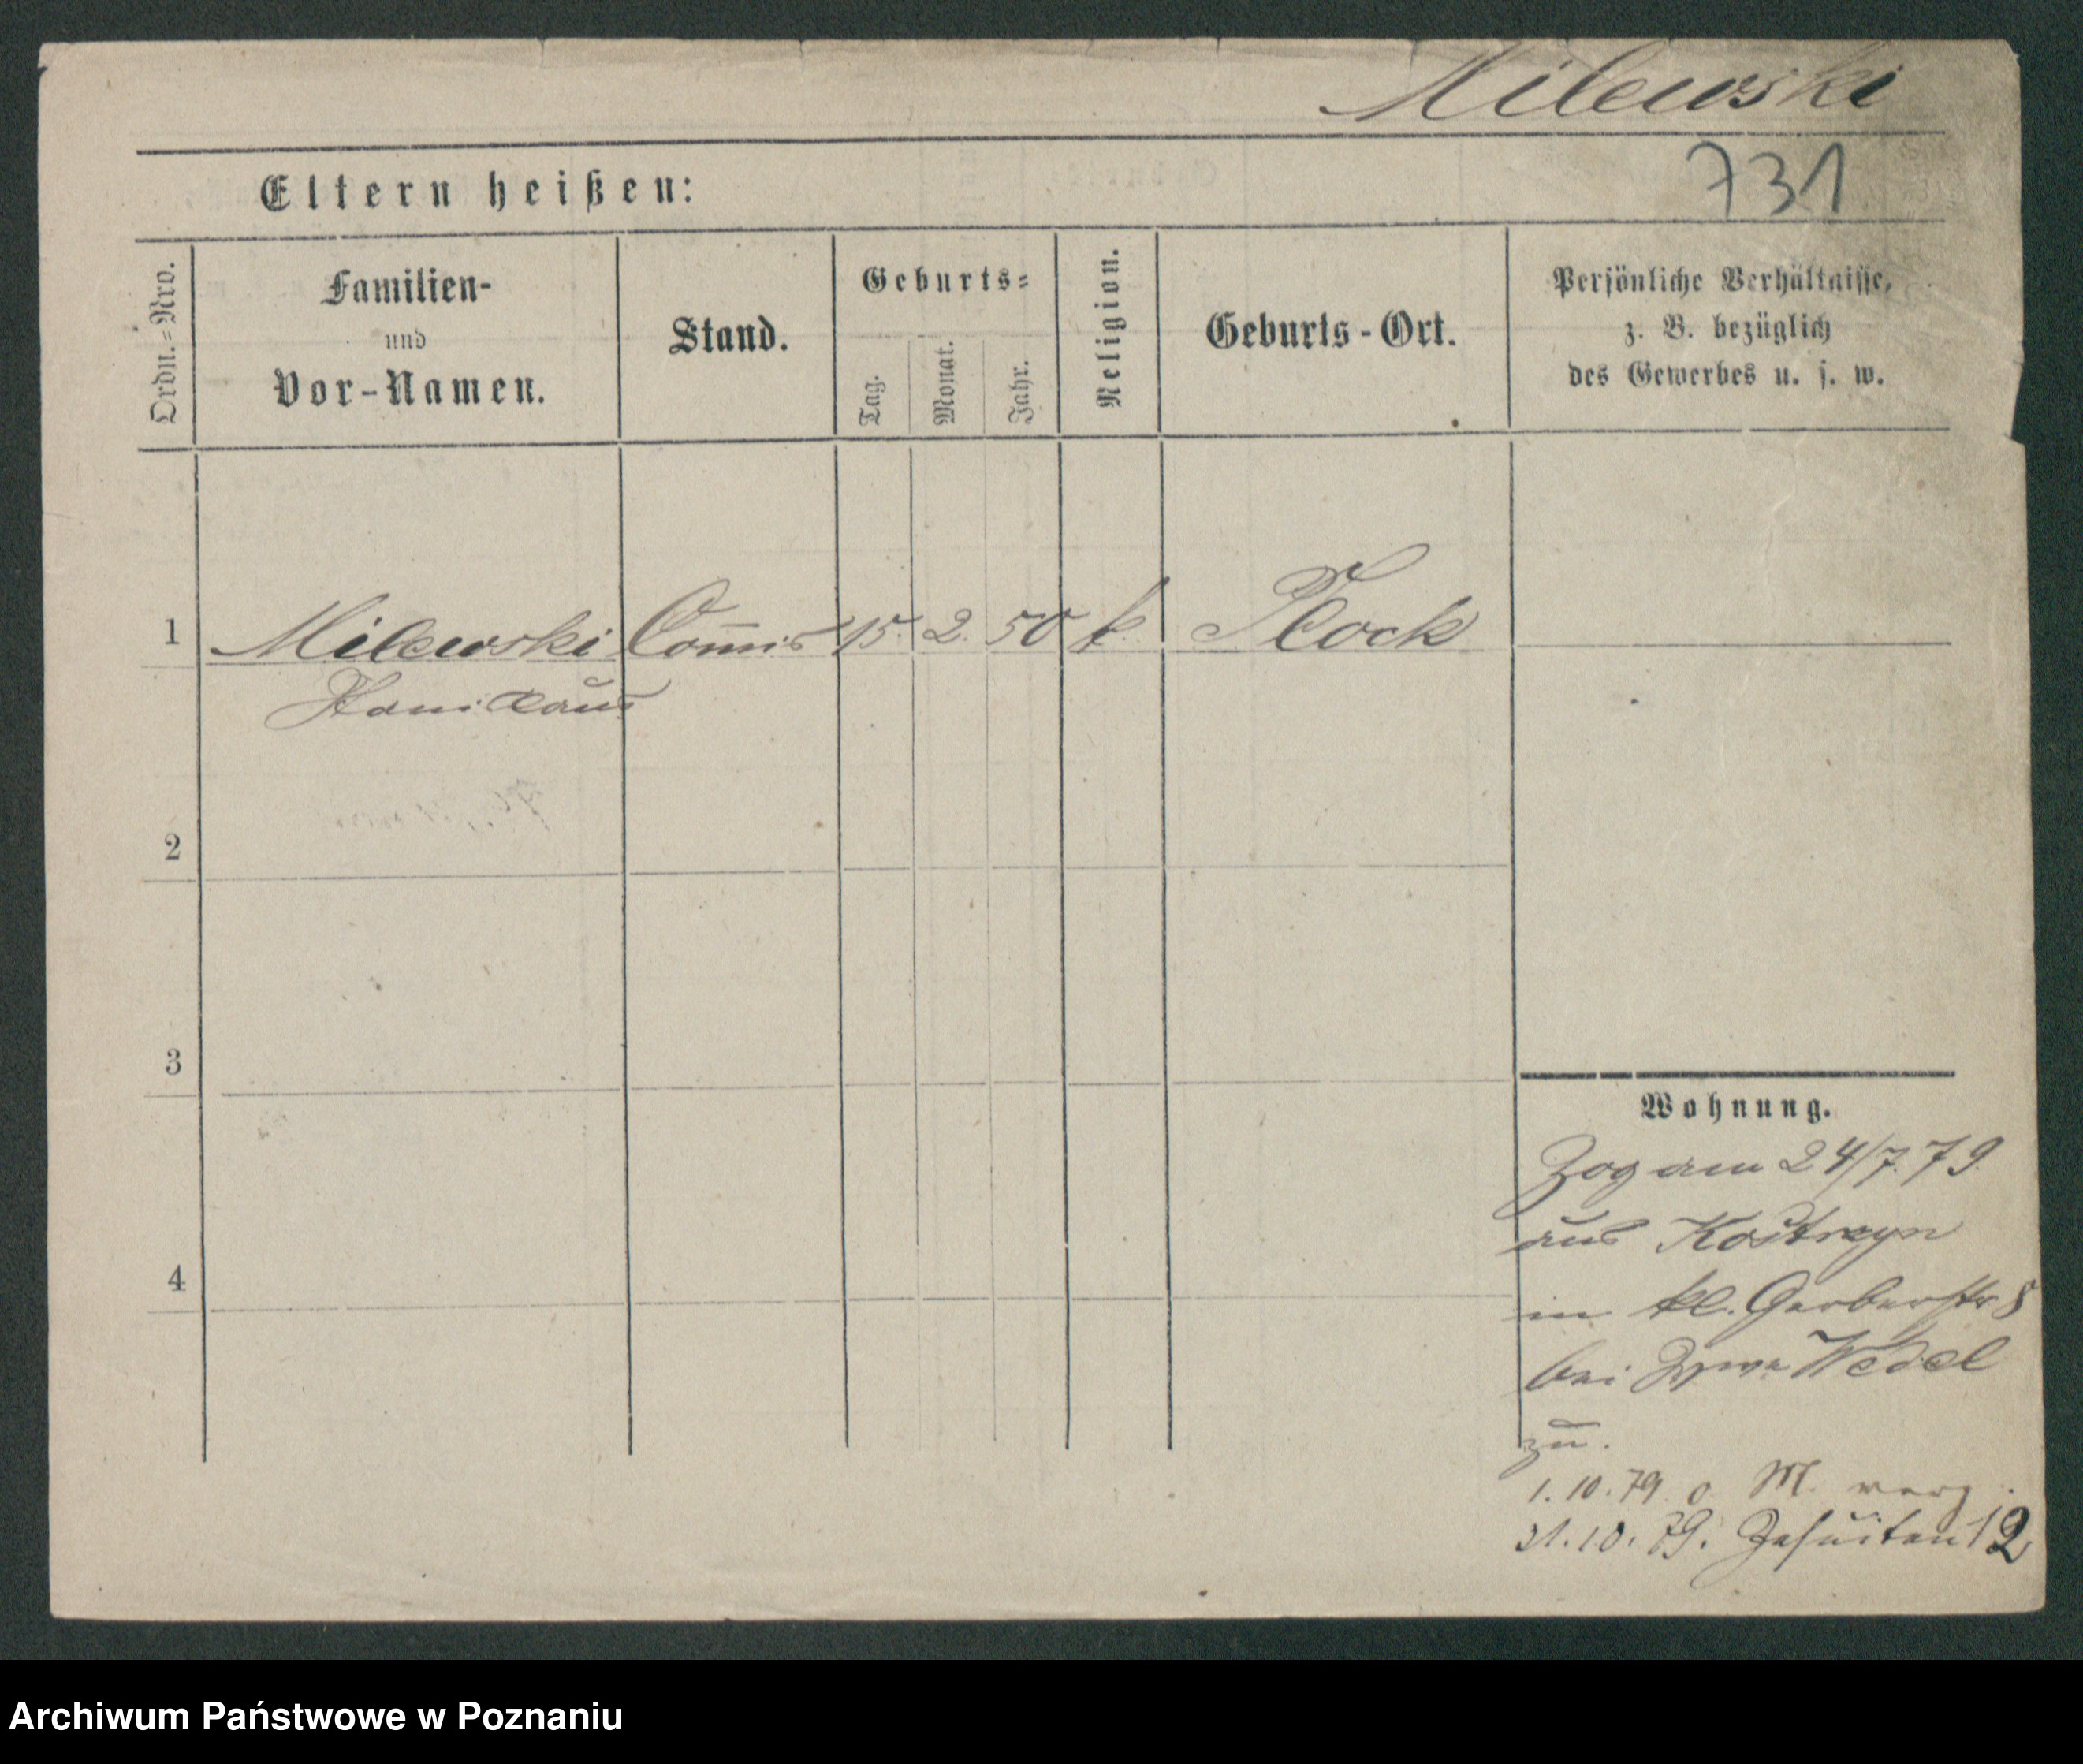 Milewski
731
Eltern heißen:
Ordn.=Nro.
Familien-
und
Vor-Namen.
Stand.
Geburts=
Tag.
Monat.
Jahr.
Religion.
Geburts-Ort.
Persönliche Verhältnisse,
z. B. bezüglich
des Gewerbes u. s. w.
1 Milewski Com̅is 15. 2. 50 k. Plock
Stanislaus
2
3
4
Wohnung.
Zog am 24/7. 79.
aus Kostrzyn
in kl. Gerberstr. 8
bei Wedel
zu.
1. 10. 79 o. M. verz.
31. 10. 79. Jesuiten 12
Archiwum Państwowe w Poznaniu